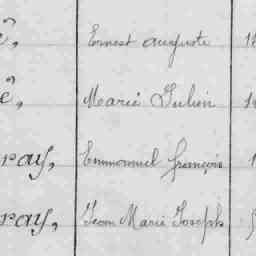 ê, Ernest auguste 18
ê, Marie Julien 1
ray, Emmanuel françois 1
ray, Jean Marie Joseph